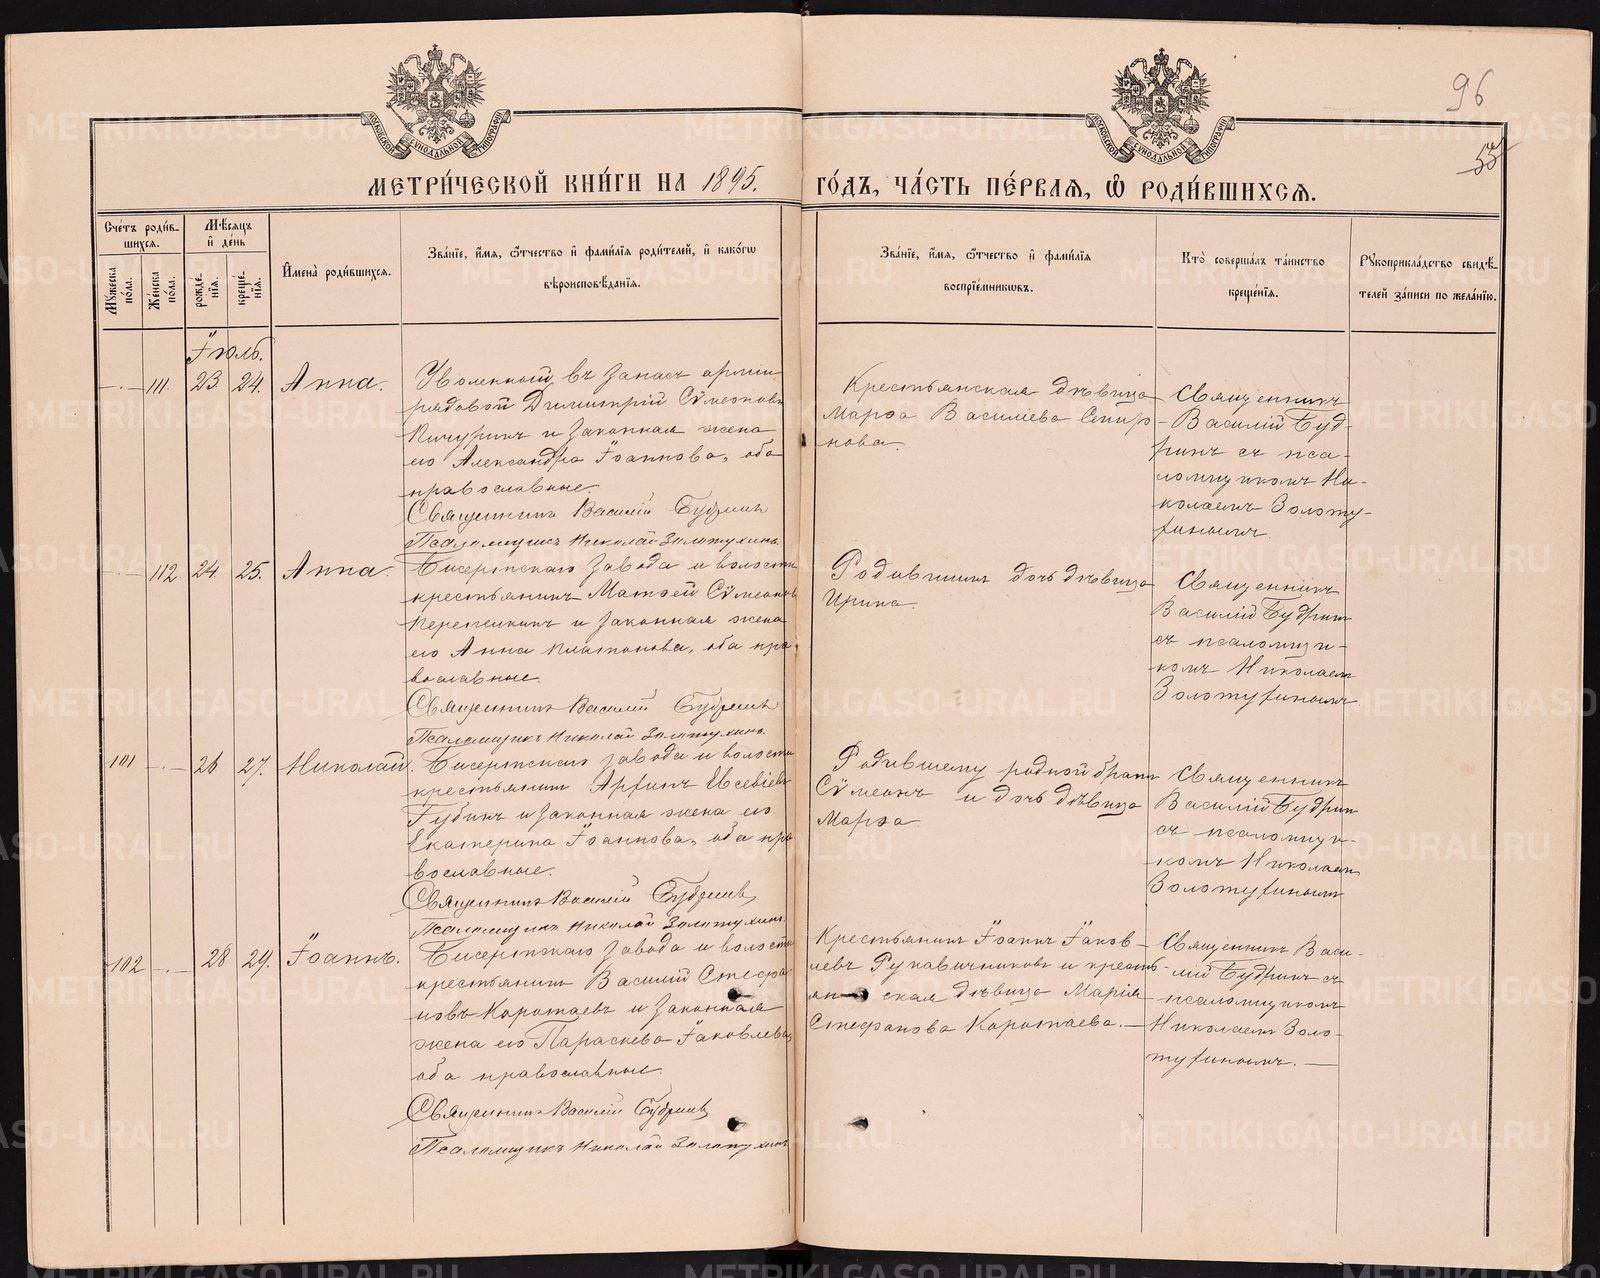 96
55
МЕТРИ́ЧЕСКОЙ КНИ́ГИ НА 1895.
ГО́ДЪ, ЧА́СТЬ ПЕ́РВАЯ, Ѡ РОДИ́ВШИХСЯ.
Сче́тъ роди́в-
шихся.
Мѣ́сяцъ
и҆ де́нь
Му́жеска по́ла.
Же́нска по́ла.
рожде́нїя.
креще́нїя.
И҆мена̀ роди́вшихся.
Зва́нїе, и҆́мя, ѻ҆́тчество и҆ фами́лїя роди́телей, и҆ како́гѡ
вѣроисповѣ́данїя.
Зва́нїе, и҆́мя, ѻ҆́тчество и҆ фами́лїя
воспрїе́мникѡвъ.
Кто̀ соверша́лъ та́инство
креще́нїя.
Рукоприкла́дство свидѣ́-
телей за́писи по жела́нїю.
Іюль.
111. 23 24. Анна.
Уволенный въ запасъ арміи
рядовой Димитрій Сѵмеоновъ
Пичугинъ и законная жена
его Александра Іоаннова, оба
православные.
Священникъ Василій Будринъ
Псаломщикъ Николай Золотухинъ.
Крестьянская дѣвица
Марѳа Василіева Смир-
нова.
Священникъ
Василій Буд-
ринъ съ пса-
ломщикомъ Ни-
колаемъ Золоту-
хинымъ.
112. 24 25. Анна.
Бисертскаго завода и волости
крестьянинъ Матѳей Сѵмеоновъ
и законная жена
его Анна Платонова, оба пра-
вославные.
Священникъ Василій Будринъ
Псаломщикъ Николай Золотухинъ.
Родившимъ дочь дѣвица
Ирина.
Священникъ
Василій Будрин
съ псаломщи-
комъ Николаем
Золотухинымъ.
101 26 27. Николай.
Бисертскаго завода и волости
крестьянин Арѳинъ Евсевіевъ
Губинъ и законная жена его
Екатерина Іоаннова, оба пра-
вославные.
Священникъ Василій Будринъ
Псаломщикъ Николай Золотухинъ.
Родившему родной братъ
Сѵмеонъ и дочь дѣвица
Марѳа.
Священникъ
Василій Будрин
съ псаломщи-
комъ Николаем
Золотухиным
102 28 29. Іоаннъ.
Бисертскаго завода и волости
крестьянин Василій Стефа-
новъ Коротаевъ и законная
жена его Параскева Іаковлева,
оба православные.
Священникъ Василій Будринъ
Псаломщикъ Николай Золотухинъ
Крестьянинъ Іоаннъ Іаков-
левъ Рукавичниковъ и кресть-
янская дѣвица Марія
Стефанова Коротаева.
Священникъ Васи-
лій Будринъ съ
псаломщикомъ
Николаем Золо-
тухинымъ.
METRIKI.GASO-URAL.RU